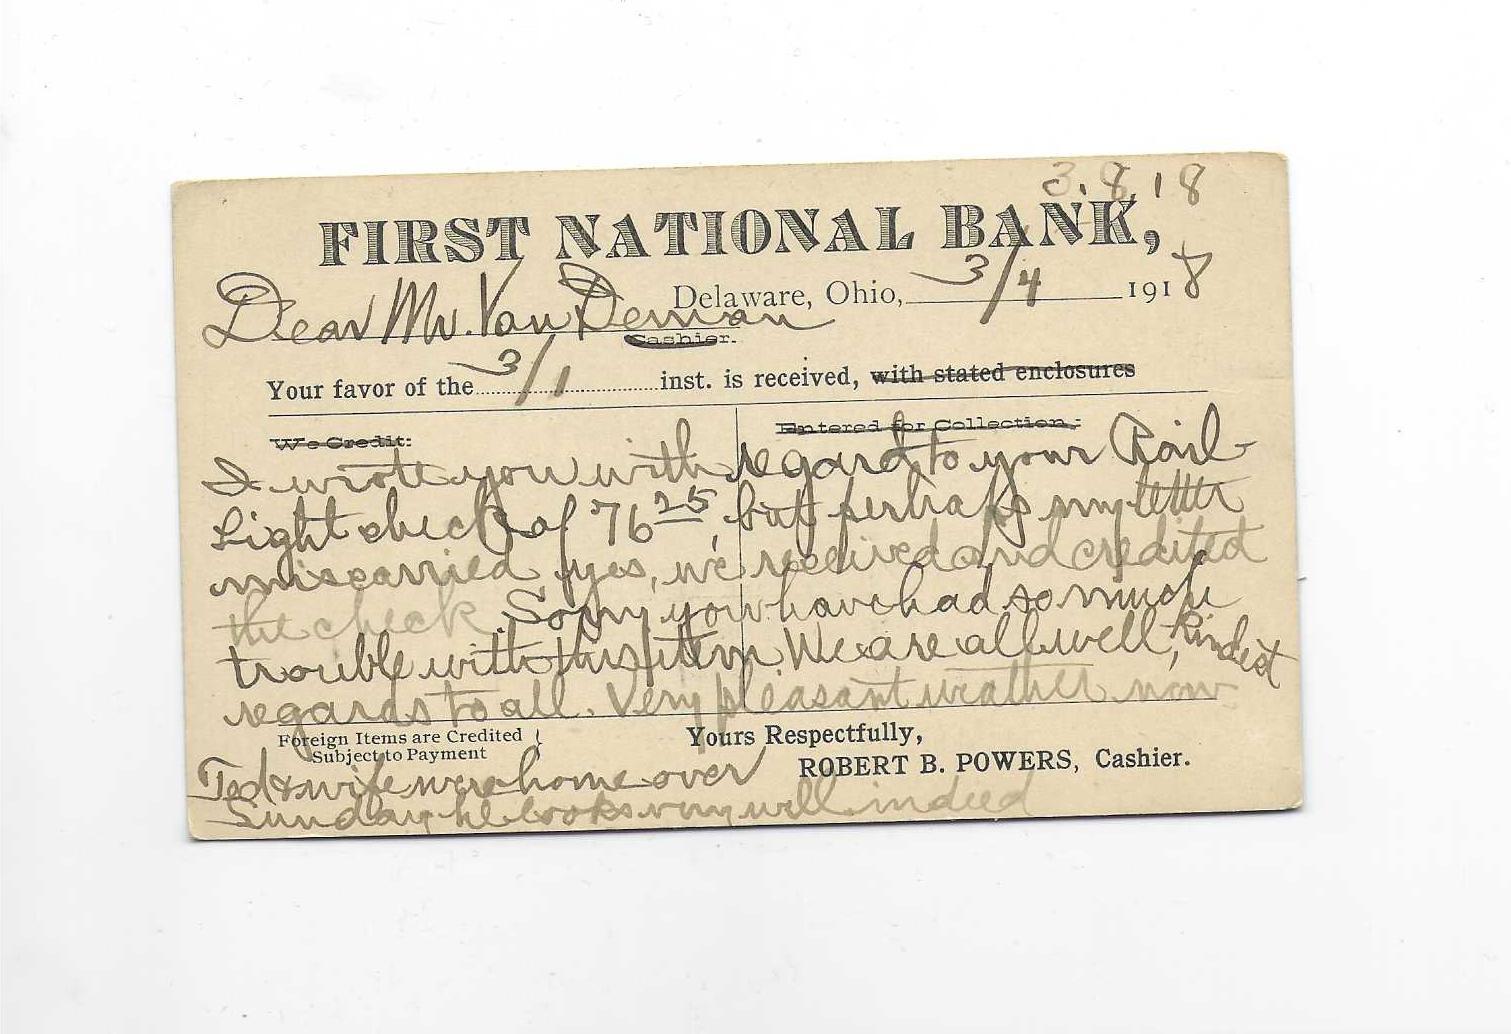 3.8.18
FIRST NATIONAL BANK,
Delaware, Ohio, 3/4 1918
Dear Mr. Van Deman
Cashier.
Your favor of the 3/1 inst. is received, with stated enclosures
We Credit: Entered for Collection,:
I wrote you with regard to your Rail-
Light check of 76 25, but perhaps my letter
miscarried yes, we received and credited
the check. Sorry you have had so much
trouble with this item. We are all well, kindest
regards to all. Very pleasant weather now
Foreign Items are Credited
Subject to Payment
Yours Respectfully,
ROBERT B. POWERS, Cashier.
Ted & wife were home over
Sunday he looks very well indeed